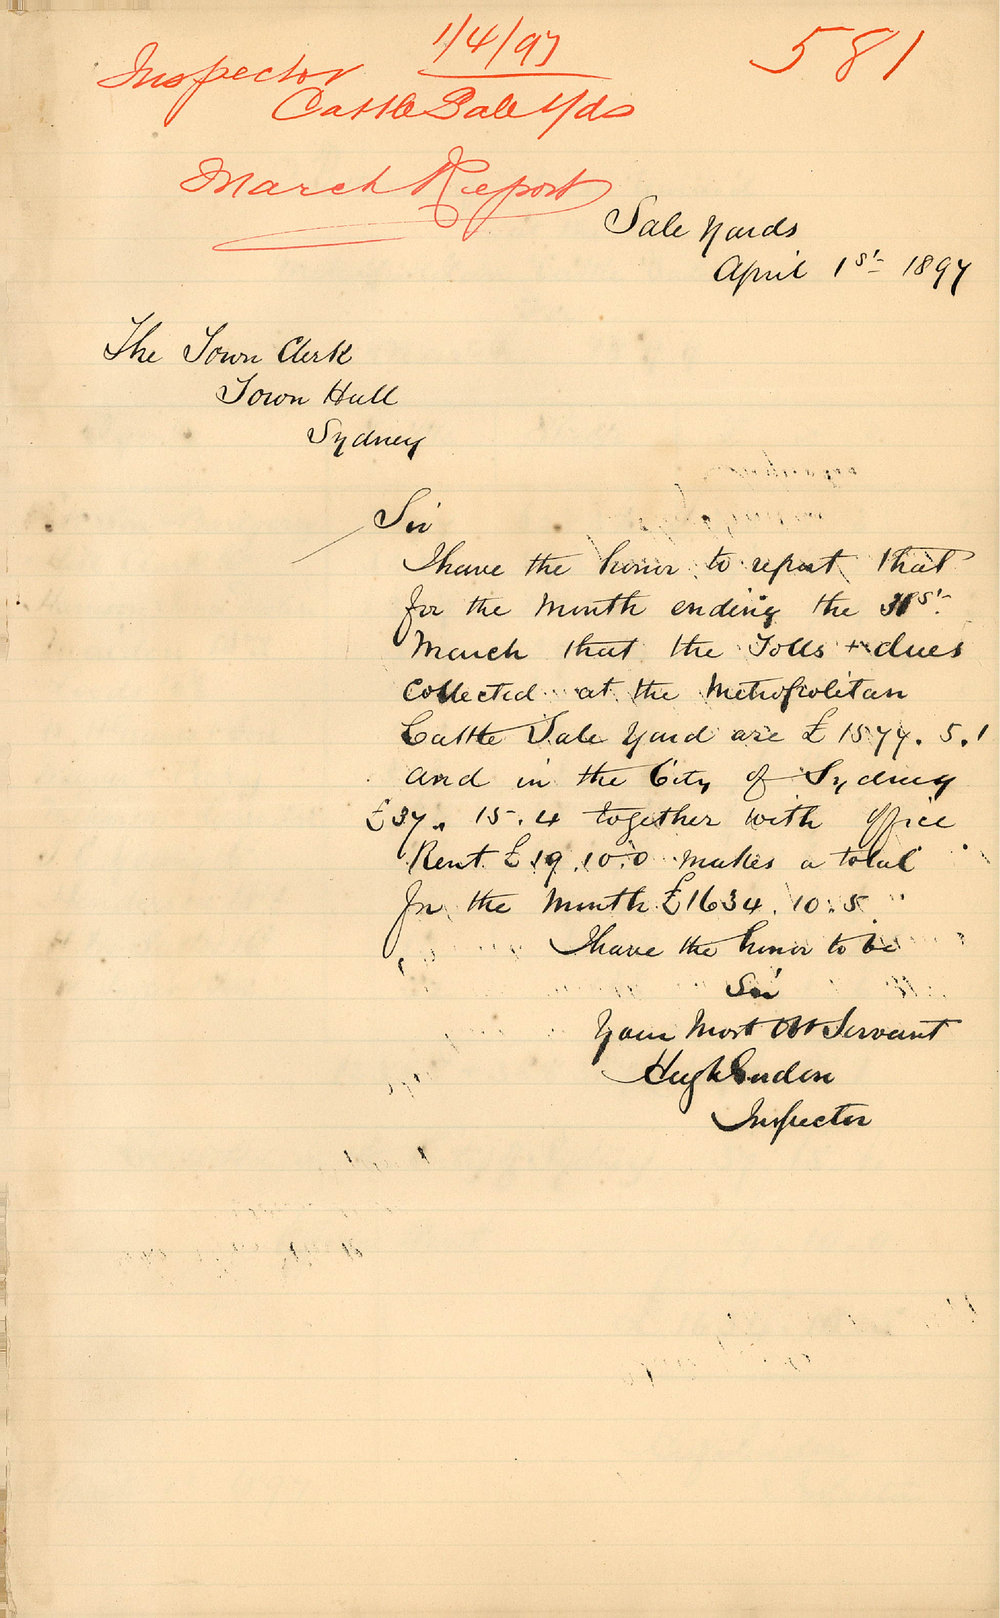 1/4/97
581
Inspector
Cattle Sale Yds
March Report
Sale Yards
April 1st 1897
The Town Clerk
Town Hall
Sydney
Sir
I have the honor to report that
for the Month ending the 31st
March that the Tolls + dues
Collected at the Metropolitan
Cattle Sale Yard are £1577. 5. 1
and in the City of Sydney
£37. 15. 4 together with office
Rent £19. 10. 0 makes a total
for the Month £1634. 10. 5
I have the honor to be
Sir
Your Most Obt Servant
Hugh
Inspector